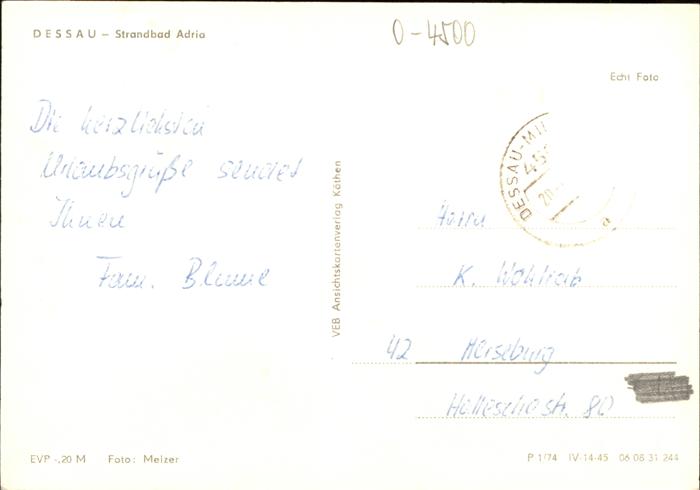 DESSAU – Strandbad Adria
0-4500
Echt Foto
Die herzlichsten
Urlaubsgrüße sendet
Ihnen
Fam. Blume
VEB Ansichtskartenverlag Köthen
DESSAU-MI
45
20.
a
Herrn
K. Wohlrab
42 Merseburg
Hallesche str. 80
EVP -,20 M Foto: Melzer
P 1/74 IV-14-45 06 08 31 244